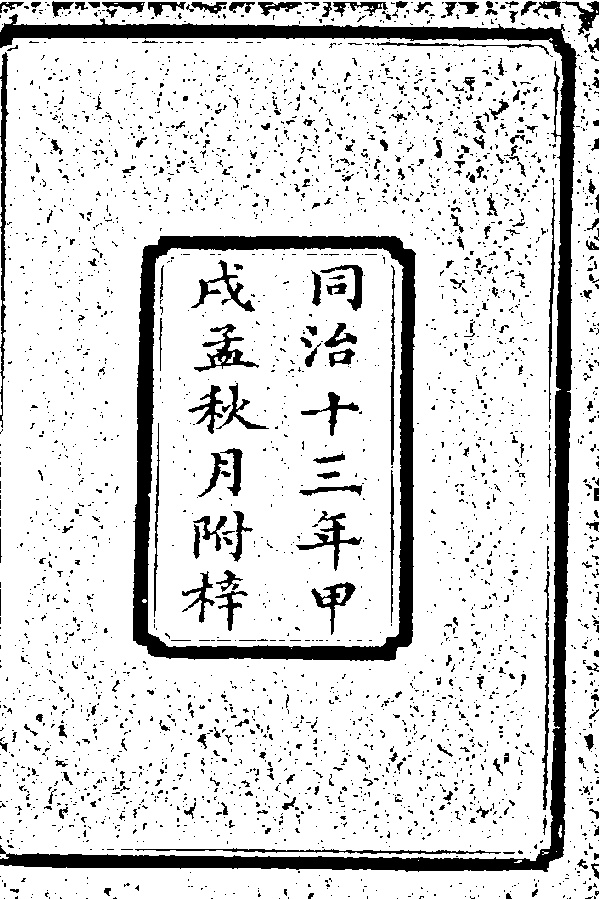 同治十三年甲
戌孟秋月附梓